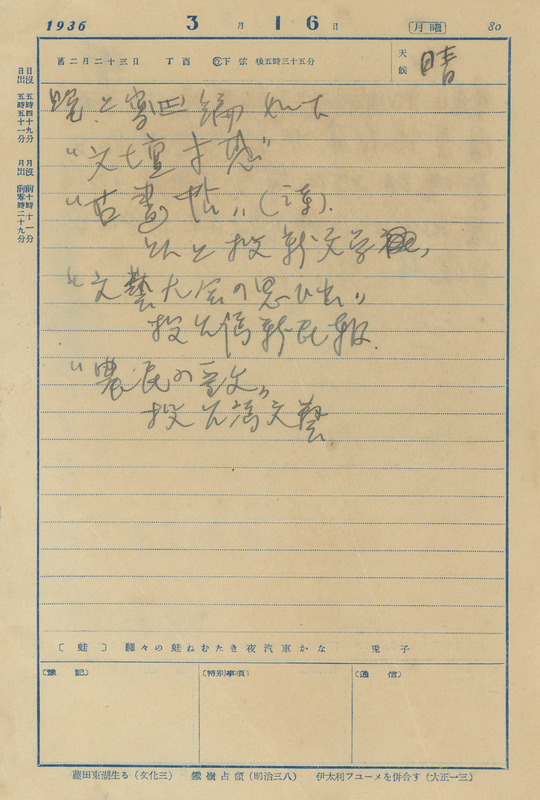 1936 3月16日 月曜 80
舊二月二十三日 丁酉 下弦 後五時三十五分
天候 晴
日出 五時五十一分
日沒 五時四十九分
月出 前零時二十九分
月沒 前十時十一分
晩上寫四編如下
"文壇才感"
"古畫帖"(譯).
以上投新文學
"文藝大会の思ひ出"
投台湾新民報.
"農民の
投台湾文藝.
〔蛙〕 驛々の蛙ねむたき夜汽車かな 兎子
〔豫記〕 〔特別事項〕 〔通信〕
藤田東湖生る(文化三) 鐵嶺占領(明治三八) 伊太利フユーメを併合す(大正一三)